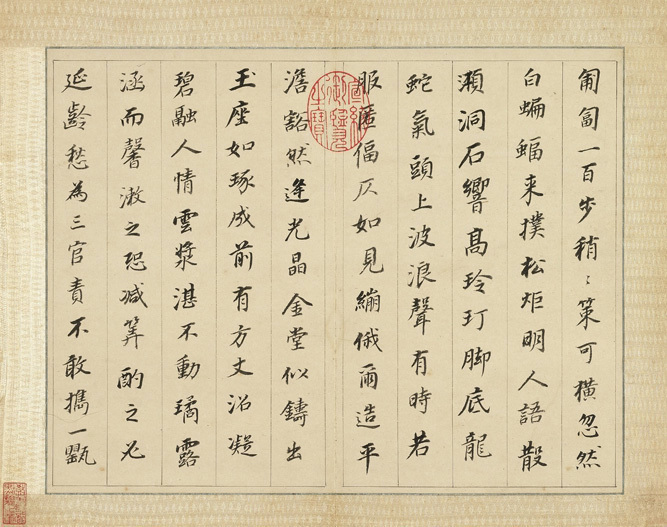 匍匐一百步稍〻策可橫忽然
白蝙蝠来撲松炬明人語散
澒洞石響高玲玎脚底龍
蛇氣頭上波浪聲有時若
服匿偪仄如見繃俄爾造平
澹豁然逢光晶金堂似鑄出
玉座如琢成前有方丈沼凝
碧融人情雲漿湛不動璚露
涵而馨漱之恐減筭酌之必
延齡愁為三官責不敢攜一甖
宣統御覽之寶